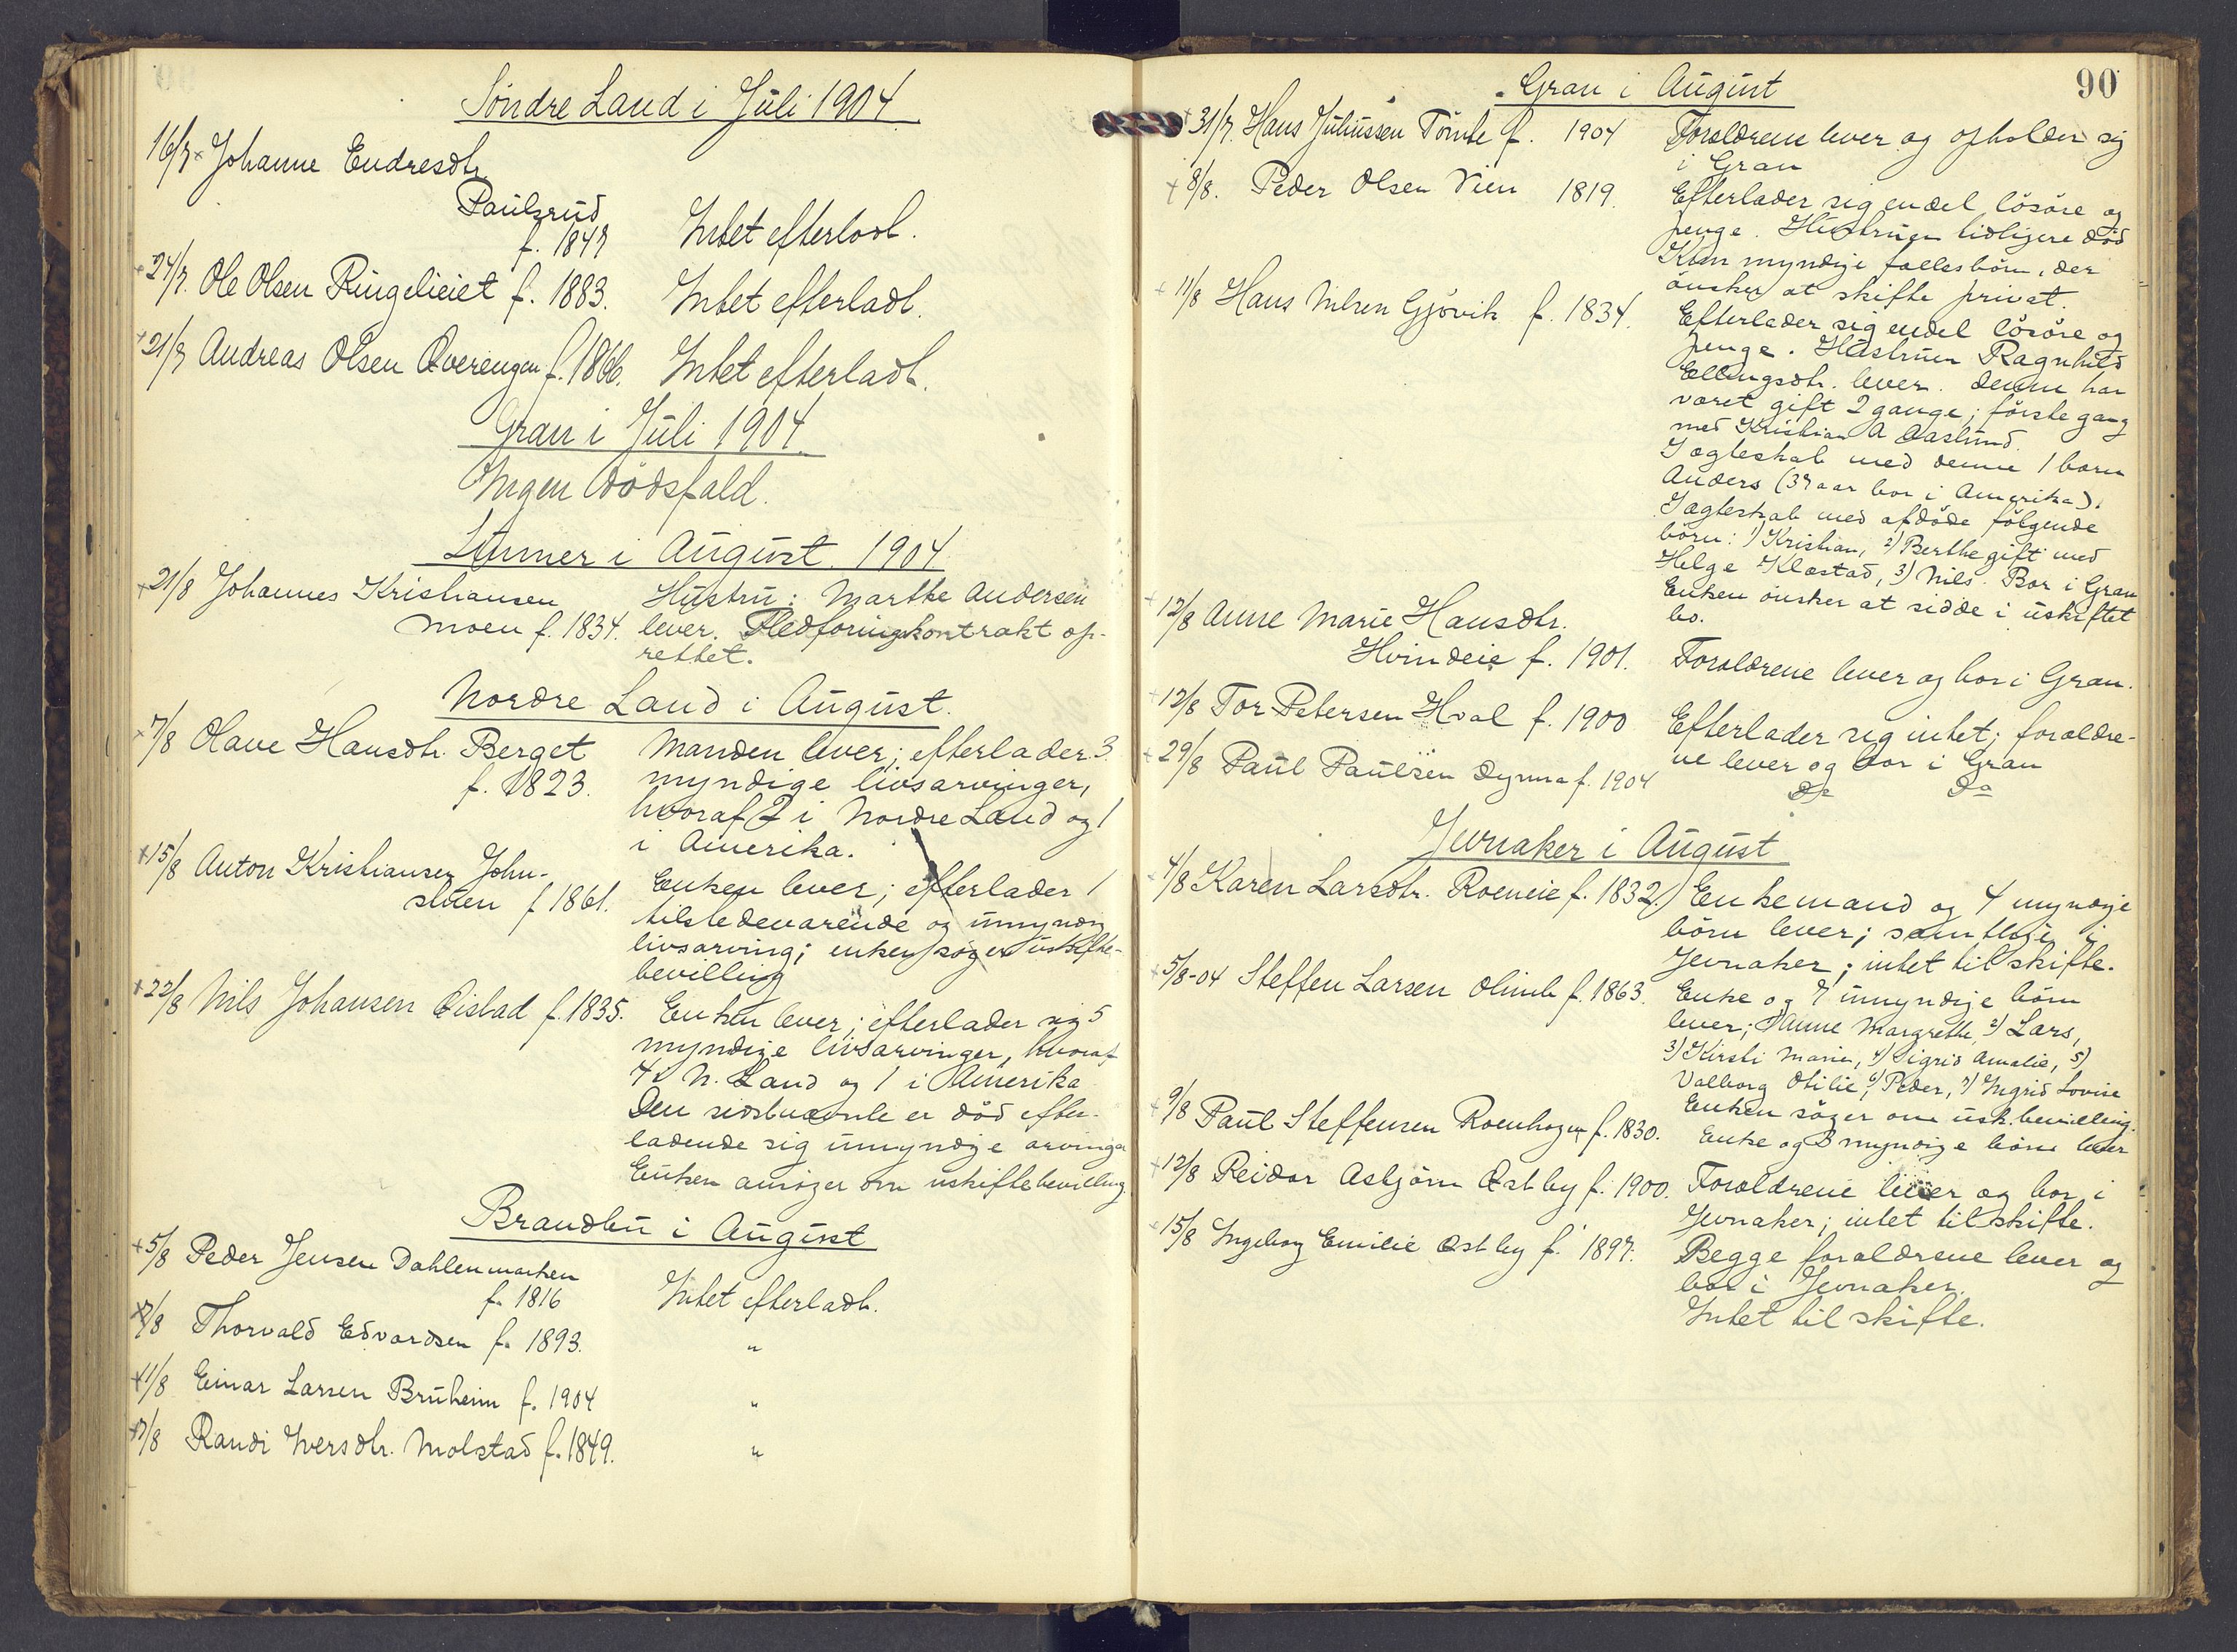 Søndre Land i Juli 1904
16/7 Johanne Endresdtr.
Paulsrud
f. 1847 Intet efterladt.
24/7. Ole Olsen Ringelieiet f. 1883. Intet efterladt.
21/7 Andreas Olsen Øverengen f. 1866. Intet efterladt.
Gran i Juli 1904.
Ingen dødsfald.
Lunner i August. 1904
21/8 Johannes Kristiansen Hustru: Marthe Andersen
Moen f. 1834. lever. Fledføringkontrakt op-
rettet.
Nordre Land i August.
7/8 Olave Hansdtr. Berget Manden lever; efterlader 3
f. 1823. myndige livsarvinger,
hvoraf 2 i Nordre Land og 1
i Amerika.
15/8 Anton Kristiansen John- Enken lever; efterlader 1
stuen f. 1861. tilstedeværende og umyndig
livsarving; enken søger uskifte-
bevilling
22/8 Nils Johansen Øistad f. 1835. Enken lever; efterlader sig 5
myndige livsarvinger, hvoraf
4 i N. Land og 1 i Amerika
Den sidstnævnte er død efter-
ladende sig umyndige arvinger
Enken ansøger om uskiftebevilling.
Brandbu i August
5/8 Peder Jensen Dahlenmarken
f. 1816 Intet efterladt.
7/8 Thorvald Edvardsen f. 1893. "
11/8 Einar Larsen Bruheim f. 1904 "
17/8 Randi Iversdtr. Molstad f. 1849. "
90
Gran i August
31/7. Hans Juliussen Tømte f. 1904 Forældrene lever og opholder sig
i Gran
8/8. Peder Olsen Vien 1819. Efterlader sig endel løsøre og
penge. Hustruen tidligere død
Kun myndige fællesbørn, der
ønsker at skifte privat.
11/8 Hans Nilsen Gjøvik f. 1834. Efterlader sig endel løsøre og
penge. Hustruen Ragnhild
Ellingsdtr. lever. denne har
været gift 2 gange; første gang
med Kristian A Aaslund.
I ægteskab med denne 1 barn
Anders (37 aar bor i Amerika).
I ægteskab med afdøde følgende
børn: 1) Kristian, 2) Berthe gift med
Helge Klæstad, 3) Nils. Bor i Gran
Enken ønsker at sidde i uskiftet
bo.
12/8 Anne Marie Hansdtr.
Hvindeie f. 1901. Forældrene lever og bor i Gran.
12/8 Tor Petersen Hval f. 1900 Efterlader sig intet; forældre-
ne lever og bor i Gran
29/8 Paul Paulsen Dynna f. 1904 Do Do
Jevnaker i August
4/8 Karen Larsdtr. Roeneie f. 1832. Enkemand og 4 myndige
børn lever; samtlige i
Jevnaker; intet til skifte.
5/8-04 Steffen Larsen Olimb f. 1863. Enke og 7 umyndige børn
lever; 1) Anne Margrethe, 2) Lars,
3) Kirsti Marie, 4) Sigrid Amalie, 5)
Valborg Otilie, 6) Peder, 7) Ingrid Lovise
Enken søger om usk. bevilling.
9/8 Paul Steffensen Roenhagen f. 1830. Enke og 3 myndige børn lever
12/8 Reidar Asbjørn Østby f. 1900. Forældrene lever og bor i
Jevnaker; intet til skifte.
15/8 Ingeborg Emilie Østby f. 1897. Begge forældrene lever og
bor i Jevnaker.
Intet til skifte.